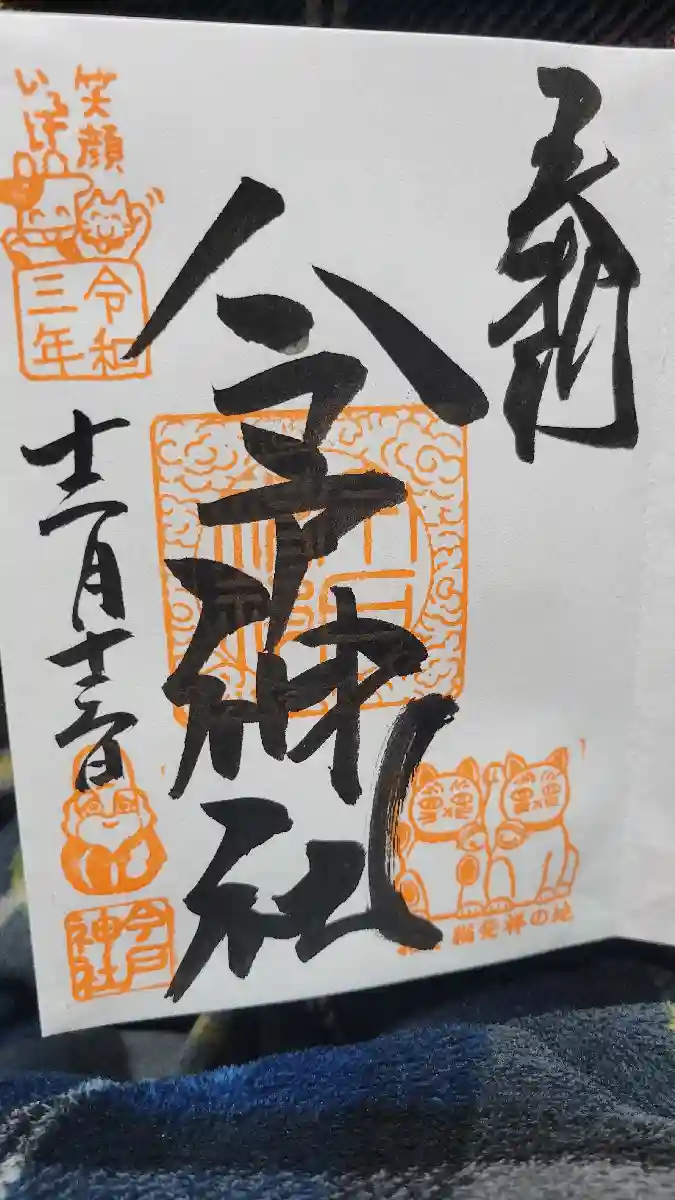 奉拝
今戸神社
笑顔
いっぱい
令和
三年
十二月
今戸
神社
猫発祥の地